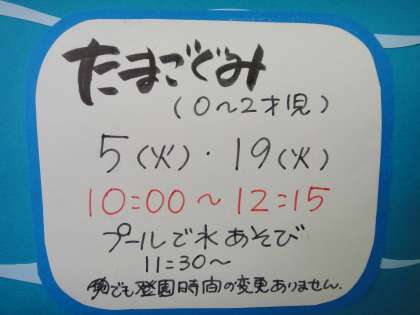 たまごぐみ
(0～2才児)
5(火)・19(火)
10:00～12:15
プールで水あそび
11:30～
でも登園時間の変更ありません.